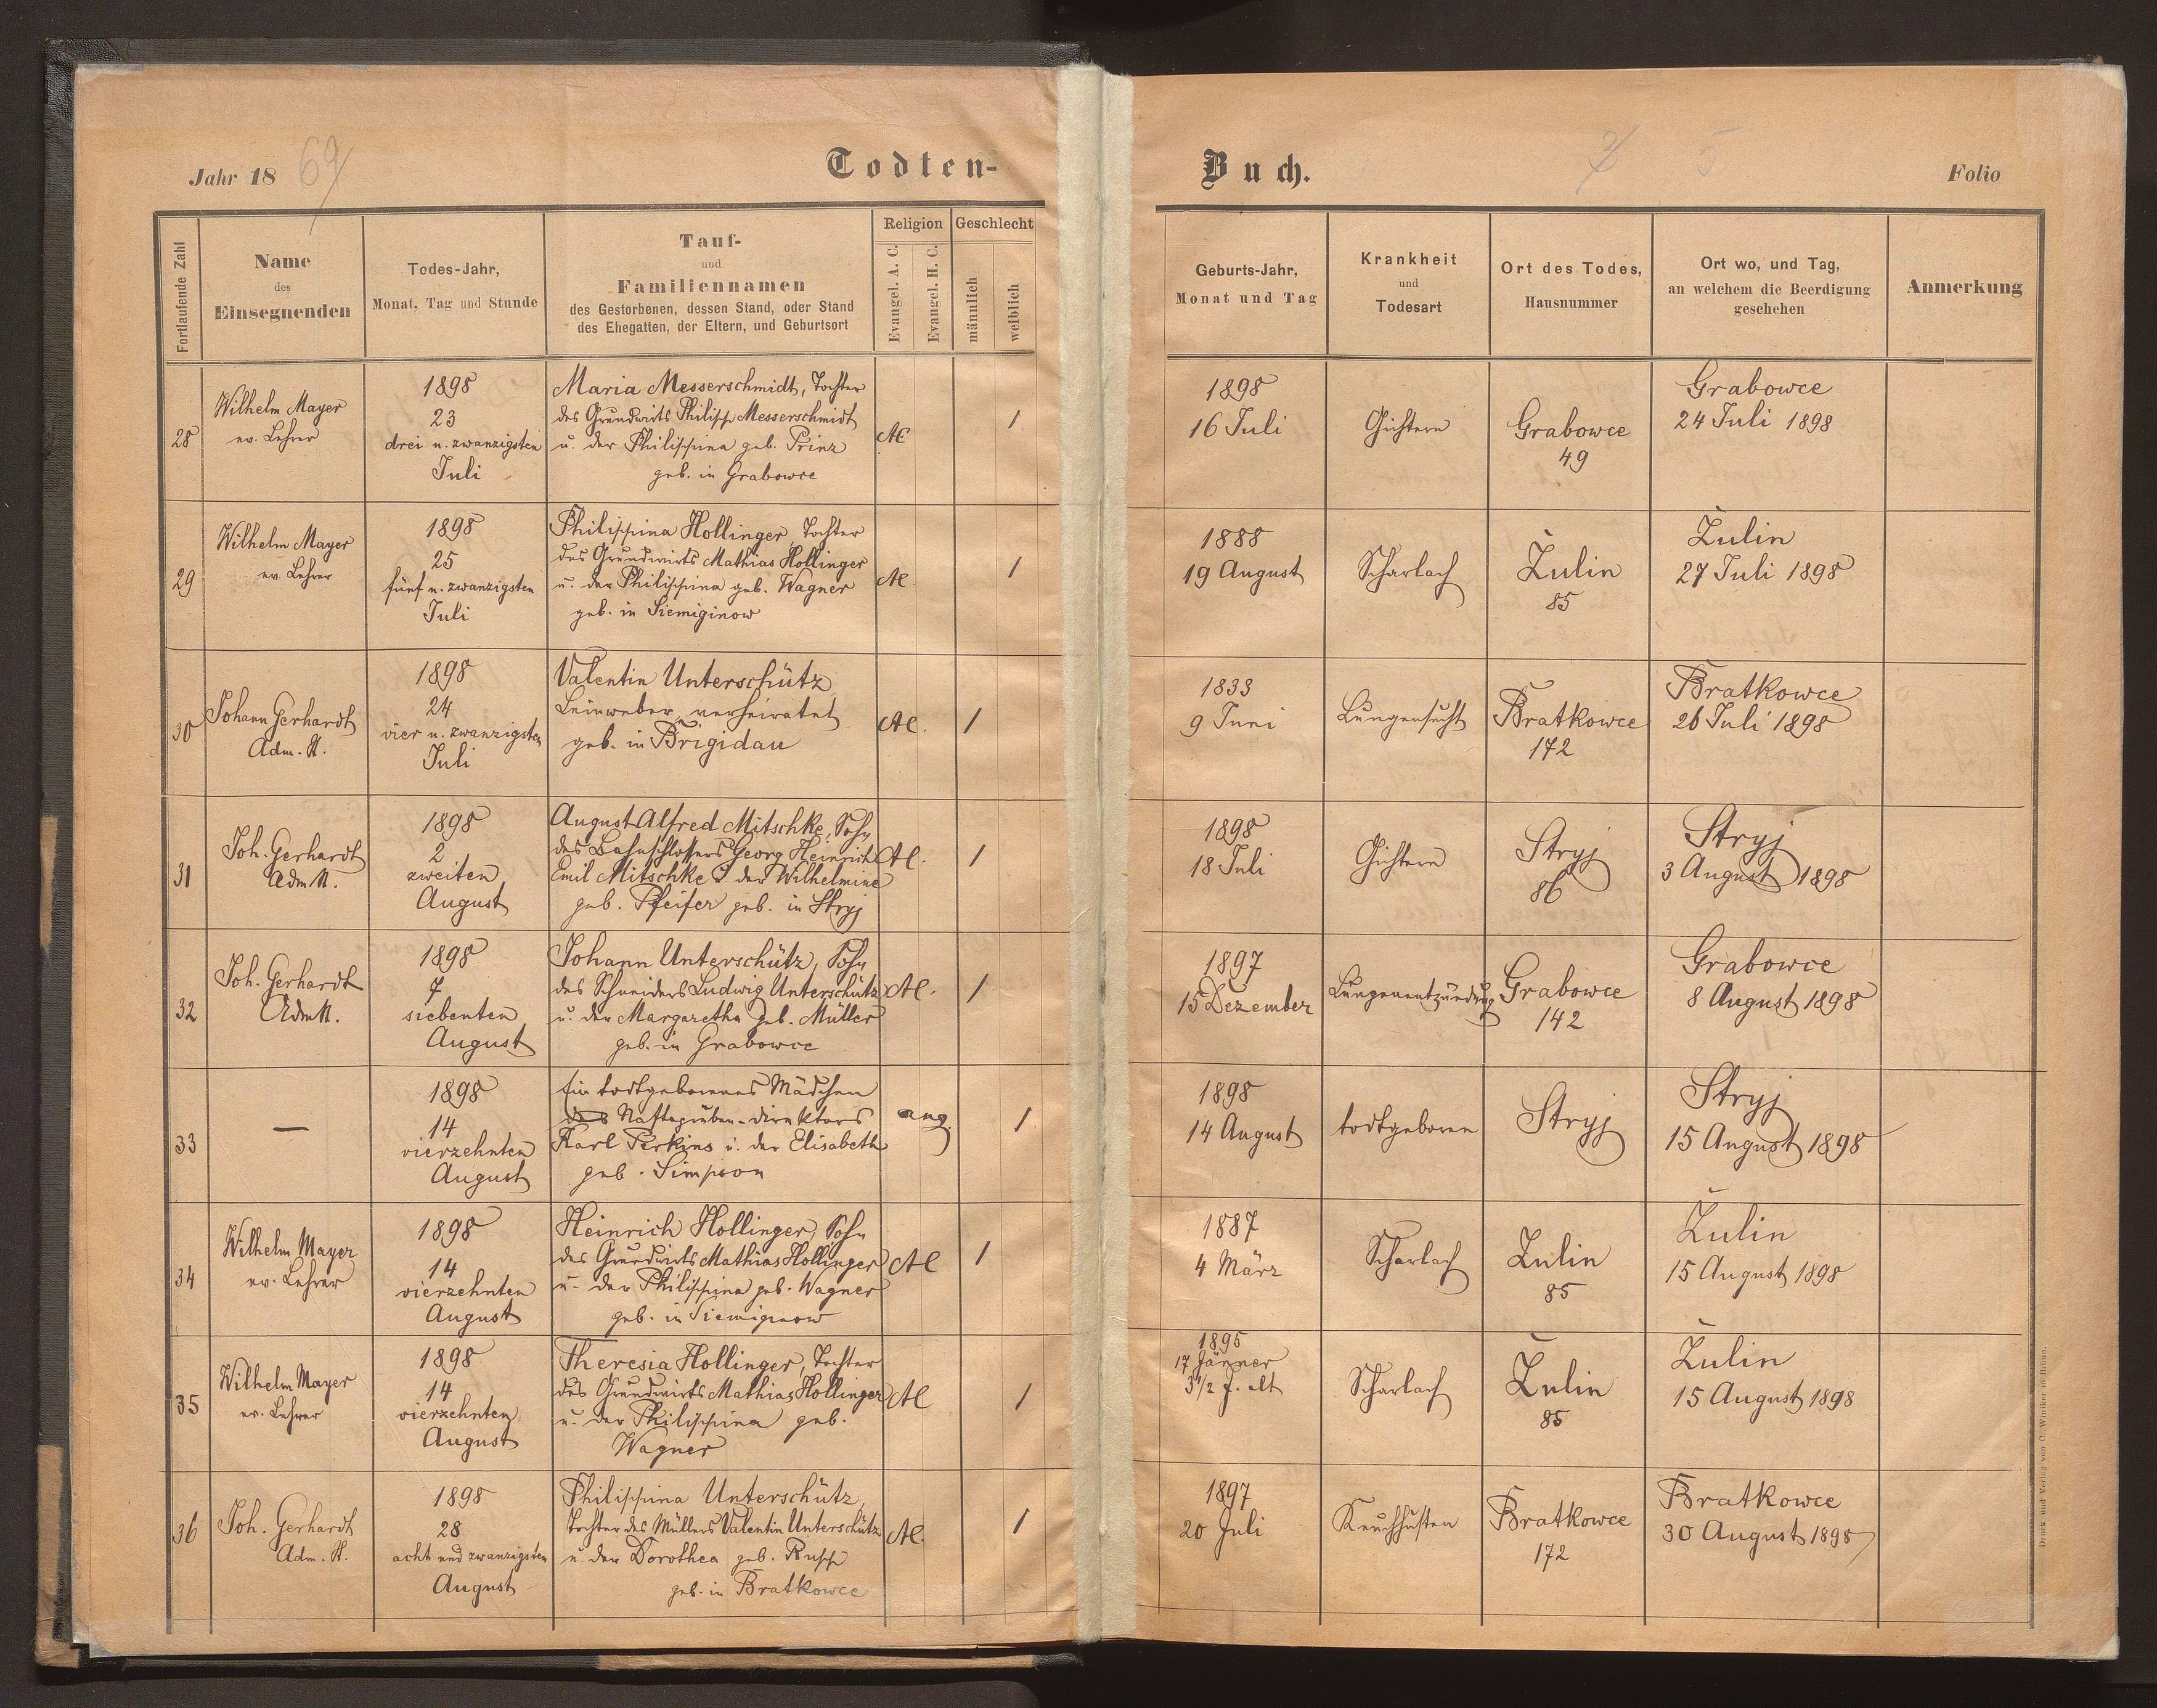 Jahr 18 69
Todten-
Fortlaufende Zahl
Name
des
Einsegnenden
Todes-Jahr,
Monat, Tag und Stunde
Tauf-
und
Familiennamen
des Gestorbenen, dessen Stand, oder Stand
des Ehegatten, der Eltern, und Geburtsort
Religion
Evangel. A. C.
Evangel. H. C.
Geschlecht
männlich
weiblich
28
Wilhelm Mayer
ev. Lehrer
1898
23
drei u. zwanzigsten
Juli
Maria Messerschmidt, Tochter
des Grundwirts Philipp Messerschmidt
u. der Philippina geb. Prinz
geb. in Grabowce
AC
1
29
Wilhelm Mayer
ev. Lehrer
1898
25
fünf u. zwanzigsten
Juli
Philippina Hollinger, Tochter
des Grundwirts Mathias Hollinger
u. der Philippina geb. Wagner
geb. in Siemiginow
AC
1
30
Johann Gerhardt
Adm. st.
1898
24
vier u. zwanzigsten
Juli
Valentin Unterschütz,
Leinweber, verheiratet
geb. in Brigidau
AC.
1
31
Joh. Gerhardt
Adm st.
1898
2
zweiten
August
August Alfred Mitschke, Sohn
des Bahnschlossers Georg Heinrich
Emil Mitschke u. der Wilhelmine
geb. Pfeifer geb. in Stryj
AC.
1
32
Joh. Gerhardt
Adm st.
1898
7
siebenten
August
Johann Unterschütz, Sohn
des Schneiders Ludwig Unterschütz
u. der Margaretha geb. Müller
geb. in Grabowce
AC.
1
33
—
1898
14
vierzehnten
August
Ein todtgeborenes Mädchen
des Naftagruben-direktors
Karl Perkins u. der Elisabeth
geb. Simpson
ang.
1
34
Wilhelm Mayer
ev. Lehrer
1898
14
vierzehnten
August
Heinrich Hollinger, Sohn
des Grundwirts Mathias Hollinger
u. der Philippina geb. Wagner
geb. in Siemiginow
AC
1
35
Wilhelm Mayer
ev. Lehrer
1898
14
vierzehnten
August
Theresia Hollinger, Tochter
des Grundwirts Mathias Hollinger
u. der Philippina geb.
Wagner
AC
1
36
Joh. Gerhardt
Adm. st.
1898
28
acht und zwanzigsten
August
Philippina Unterschütz,
Tochter des Müllers Valentin Unterschütz
u. der Dorothea geb. Rupp
geb. in Bratkowce
AC.
1
Buch.
5
Folio
Geburts-Jahr,
Monat und Tag
Krankheit
und
Todesart
Ort des Todes,
Hausnummer
Ort wo, und Tag,
an welchem die Beerdigung
geschehen
Anmerkung
1898
16 Juli
Gichtern
Grabowce
49
Grabowce
24 Juli 1898
1888
19 August
Scharlach
Žulin
85
Žulin
27 Juli 1898
1833
9 Juni
Lungensucht
Bratkowce
172
Bratkowce
26 Juli 1898
1898
18 Juli
Gichtern
Stryj
86
Stryj
3 August 1898
1897
15 Dezember
Lungenentzündung
Grabowce
142
Grabowce
8 August 1898
1898
14 August
todtgeboren
Stryj
Stryj
15 August 1898
1887
4 März
Scharlach
Žulin
85
Žulin
15 August 1898
1895
17 Jänner
3 1/2 J. alt
Scharlach
Žulin
85
Žulin
15 August 1898
1897
20 Juli
Keuchhusten
Bratkowce
172
Bratkowce
30 August 1898
Druck und Verlag von C. Winiker in Brünn.